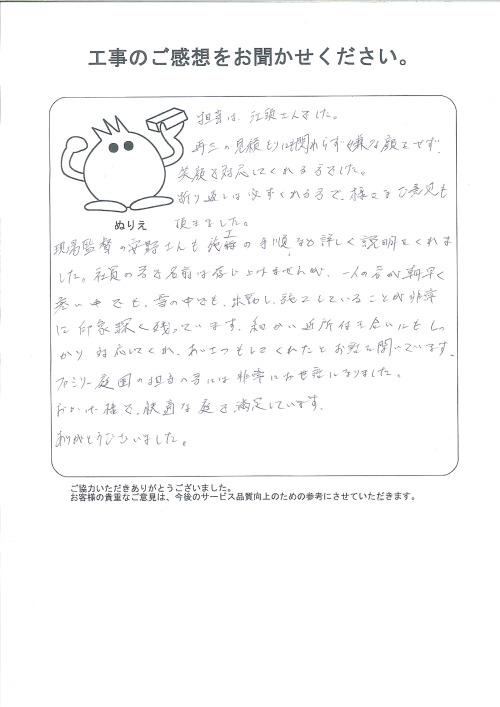 工事のご感想をお聞かせください。
担当は、江頭さんでした。
再三の見積もりにも関わらず嫌な顔もせず、
笑顔で対応してくれる方でした。
折り返しは必ずくれる方で、様々なご意見も
ぬりえ
頂きました。
現場監督の安野さんも施工の手順など詳しく説明をくれま
した。社員の方で名前は存じ上げませんが、一人の方が朝早く
寒い中でも、雪の中でも、出勤し、施工していることが非常
に印象深く残っています。細かい近所付き合いにもしっ
かり対応してくれ、あいさつもしてくれたとお話を聞いています。
ファミリー庭園の担当の方には非常にお世話になりました。
おかげ様で、快適な庭で満足しています。
ありがとうございました。
ご協力いただきありがとうございました。
お客様の貴重なご意見は、今後のサービス品質向上のための参考にさせていただきます。